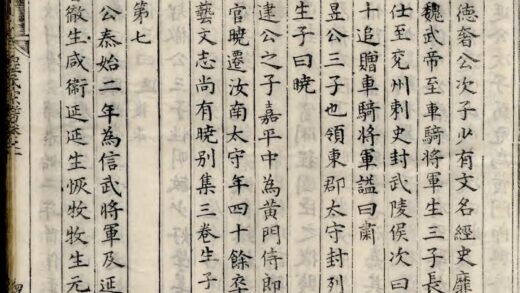 德奢公次子少有文名經史靡
魏武帝至車騎將軍生三子長
仕至兗州刺史封武陵侯次曰
十追贈車騎將軍謚曰肅
昱公三子也領東郡太守封列
生子曰曉
逮公之子嘉平中為黃門侍郎
官曉遷汝南太守年四十餘卒
藝文志尚有曉別集三卷生子
第七
公泰始二年為信武將軍及延
徹生咸衛延延生恢牧牧生元